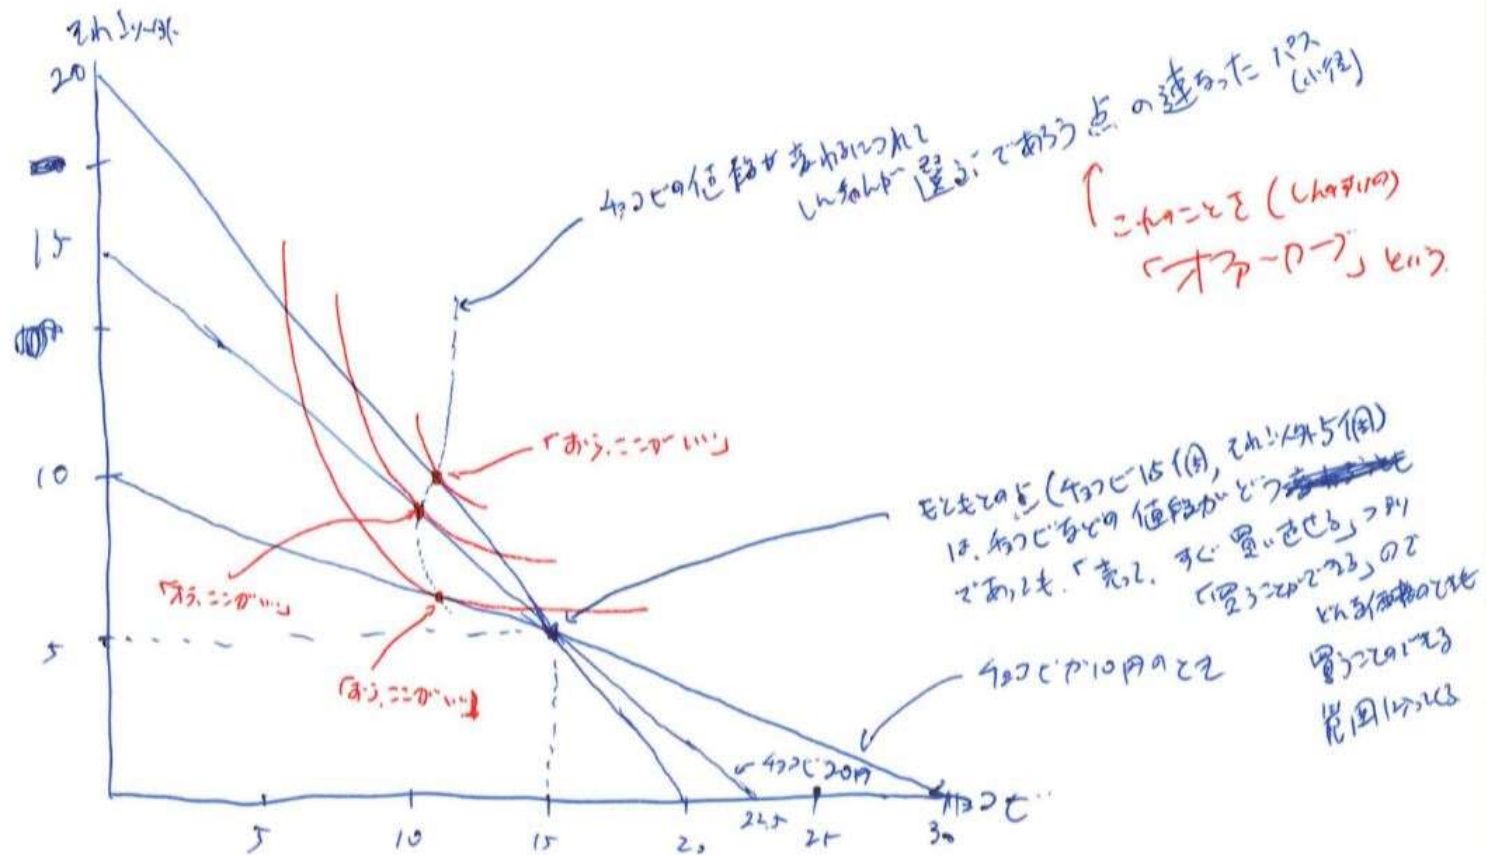 それ以外
20
15
10
5
チョコビの値段が変わるにつれて
しんちゃんが選ぶであろう点の連なったパス
(小径)
これのことを(しんちゃんの)
「オファーカーブ」という
「おら、ここがいい」
「オラ、ここがいい」
「おら、ここがいい」
もともとの点(チョコビ15個, それ以外5個)
は、チョコビなどの値段がどう
であっても、「売って、すぐ買い戻せる」つまり
「買うことができる」ので
どんな価格のときも
買うことのできる
範囲に入ってる
チョコビが10円のとき
チョコビ20円
チョコビ
5
10
15
20
22.5
25
30